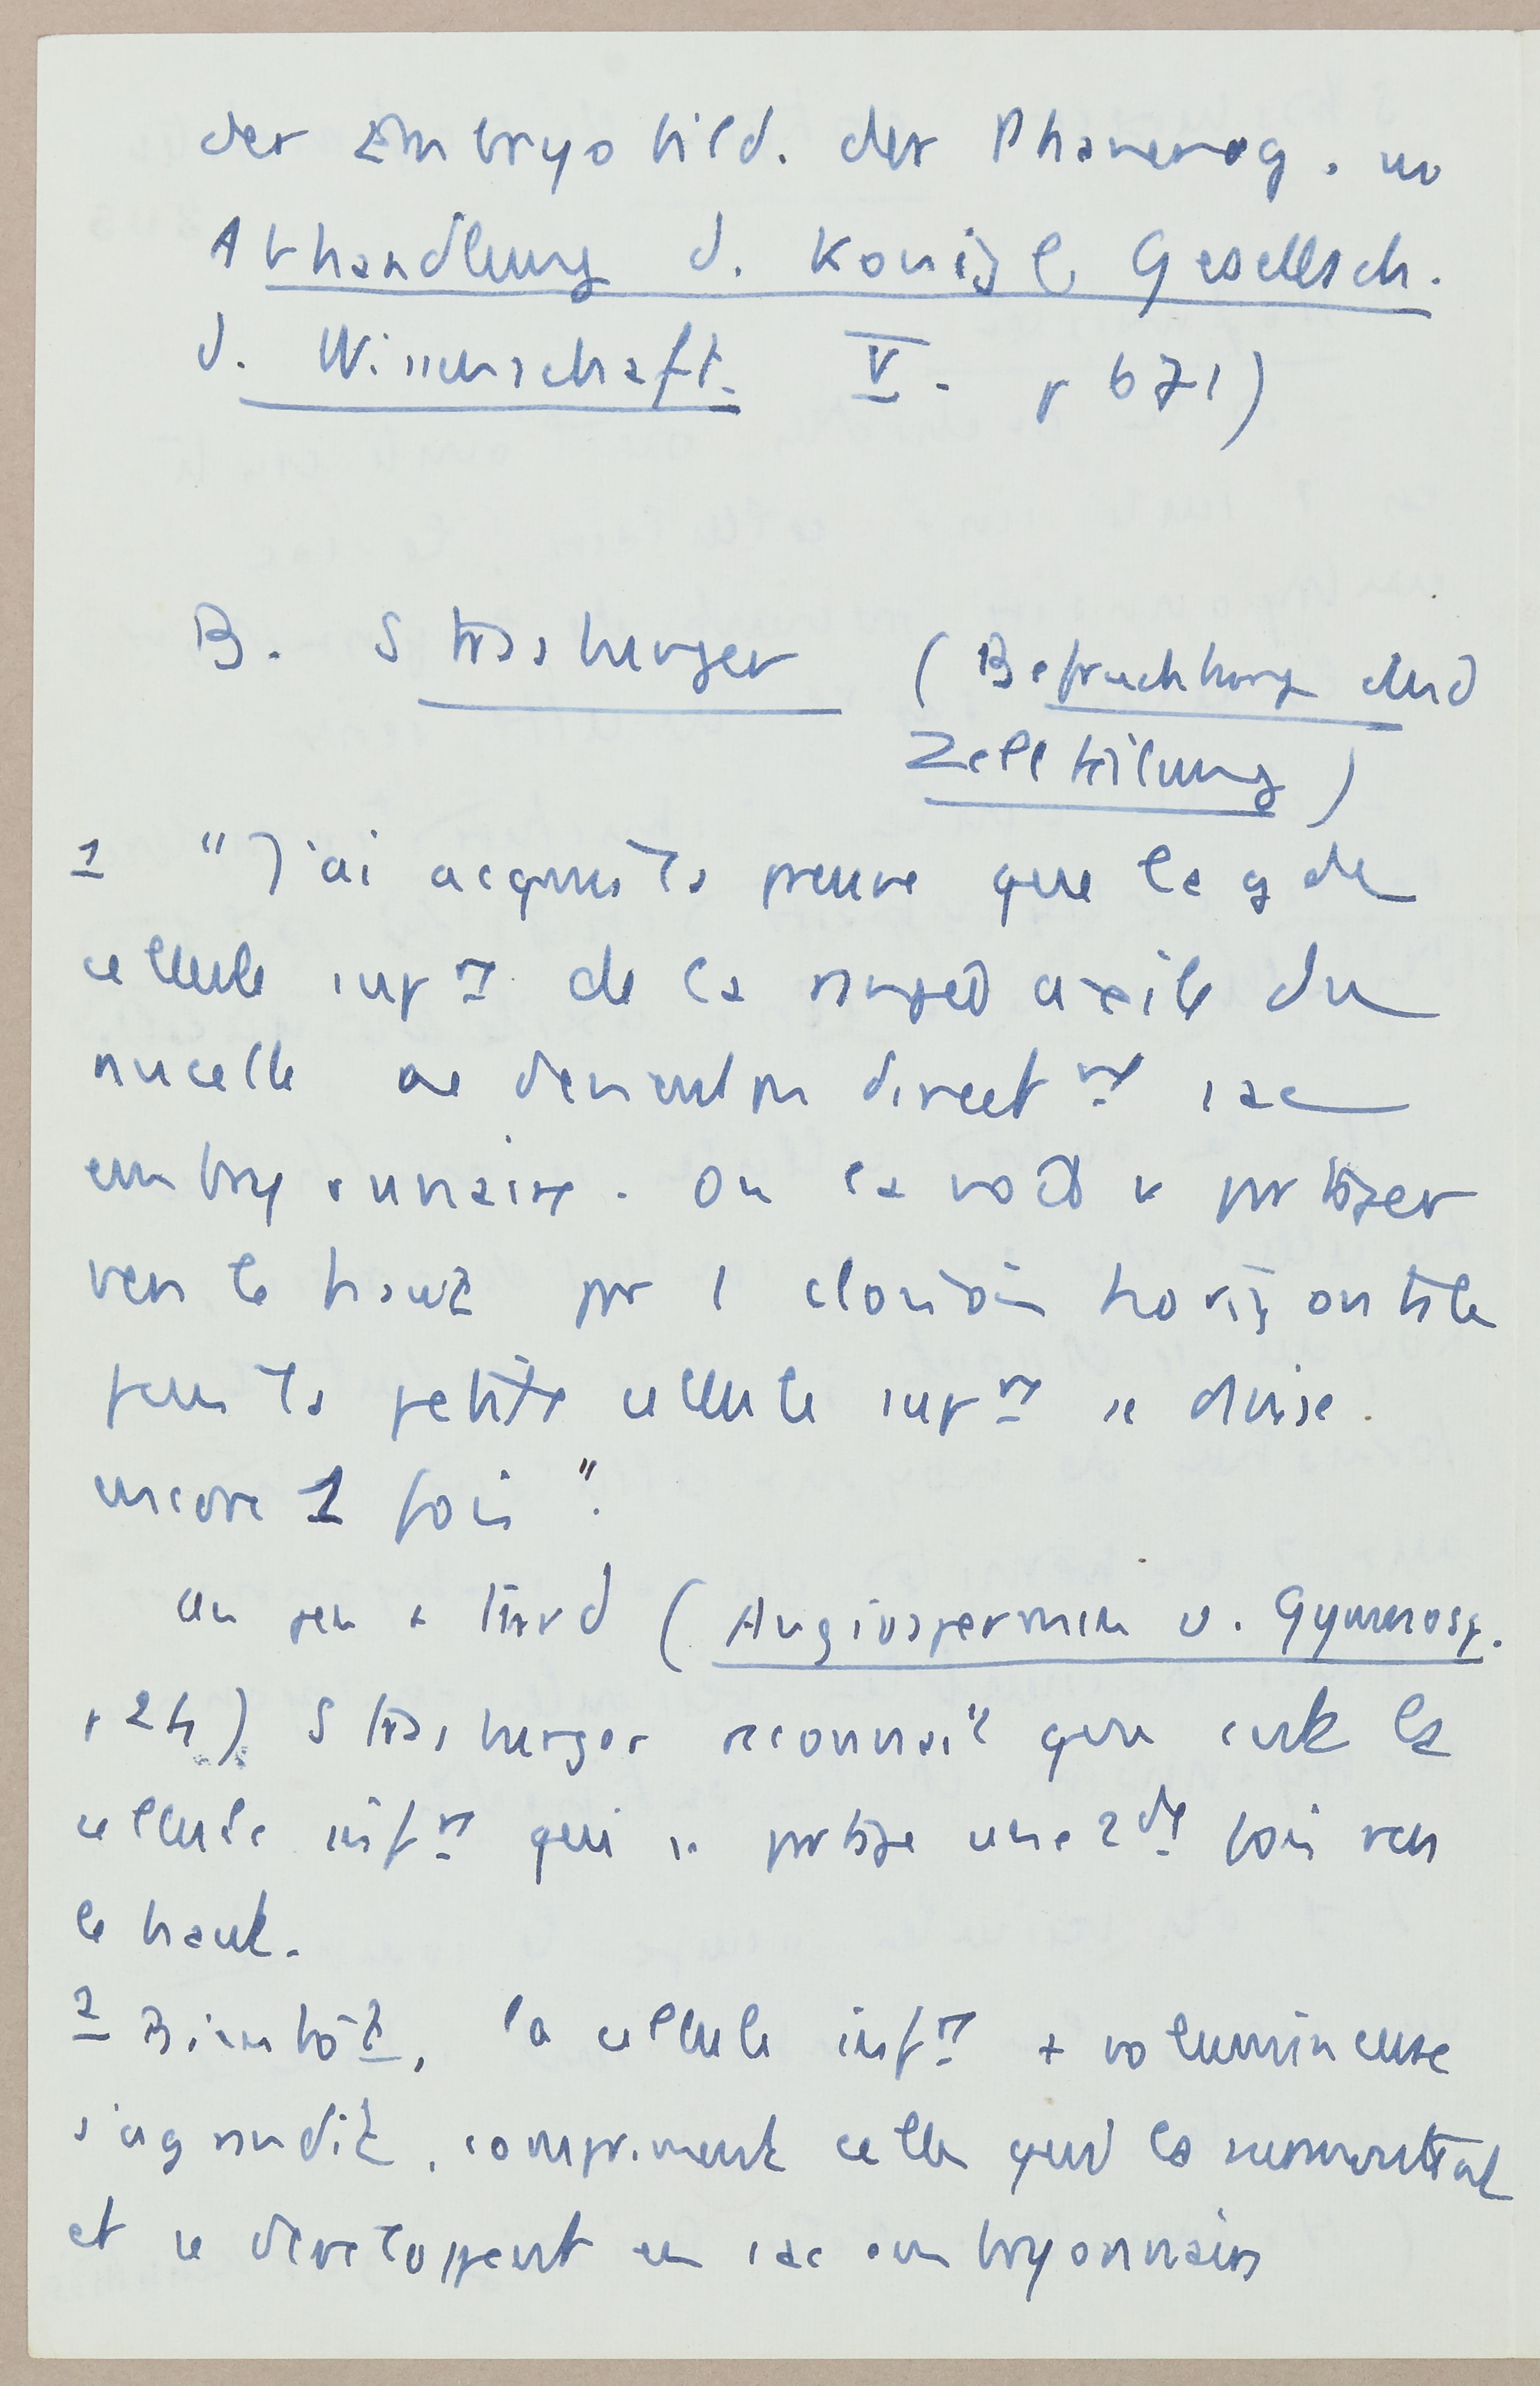 der Embryobild. der Phanerog. in
Abhandlung d. Konigl Gesellsch.
d. Wissenschaft. V. p 671)
B. Strasburger (Befruchtung und
Zellteilung)
1 "J'ai acquis la preuve que la gde
cellule supre de la rangée axile du
nucelle ne devient pas directmt sac
embryonnaire. On la voit se partager
vers le haut par 1 cloison horizontale
puis la petite cellule supre se divise
encore 1 fois".
un peu + tard (Angiospermen u. Gymnosp.
p 24) Strasburger reconnait que c'est la
cellule infre qui se partage une 2de fois vers
le haut.
2 Bientôt, la cellule infre + volumineuse
s'agrandit, compriment celles qui la surmontent
et se developpent en sac embryonnaire